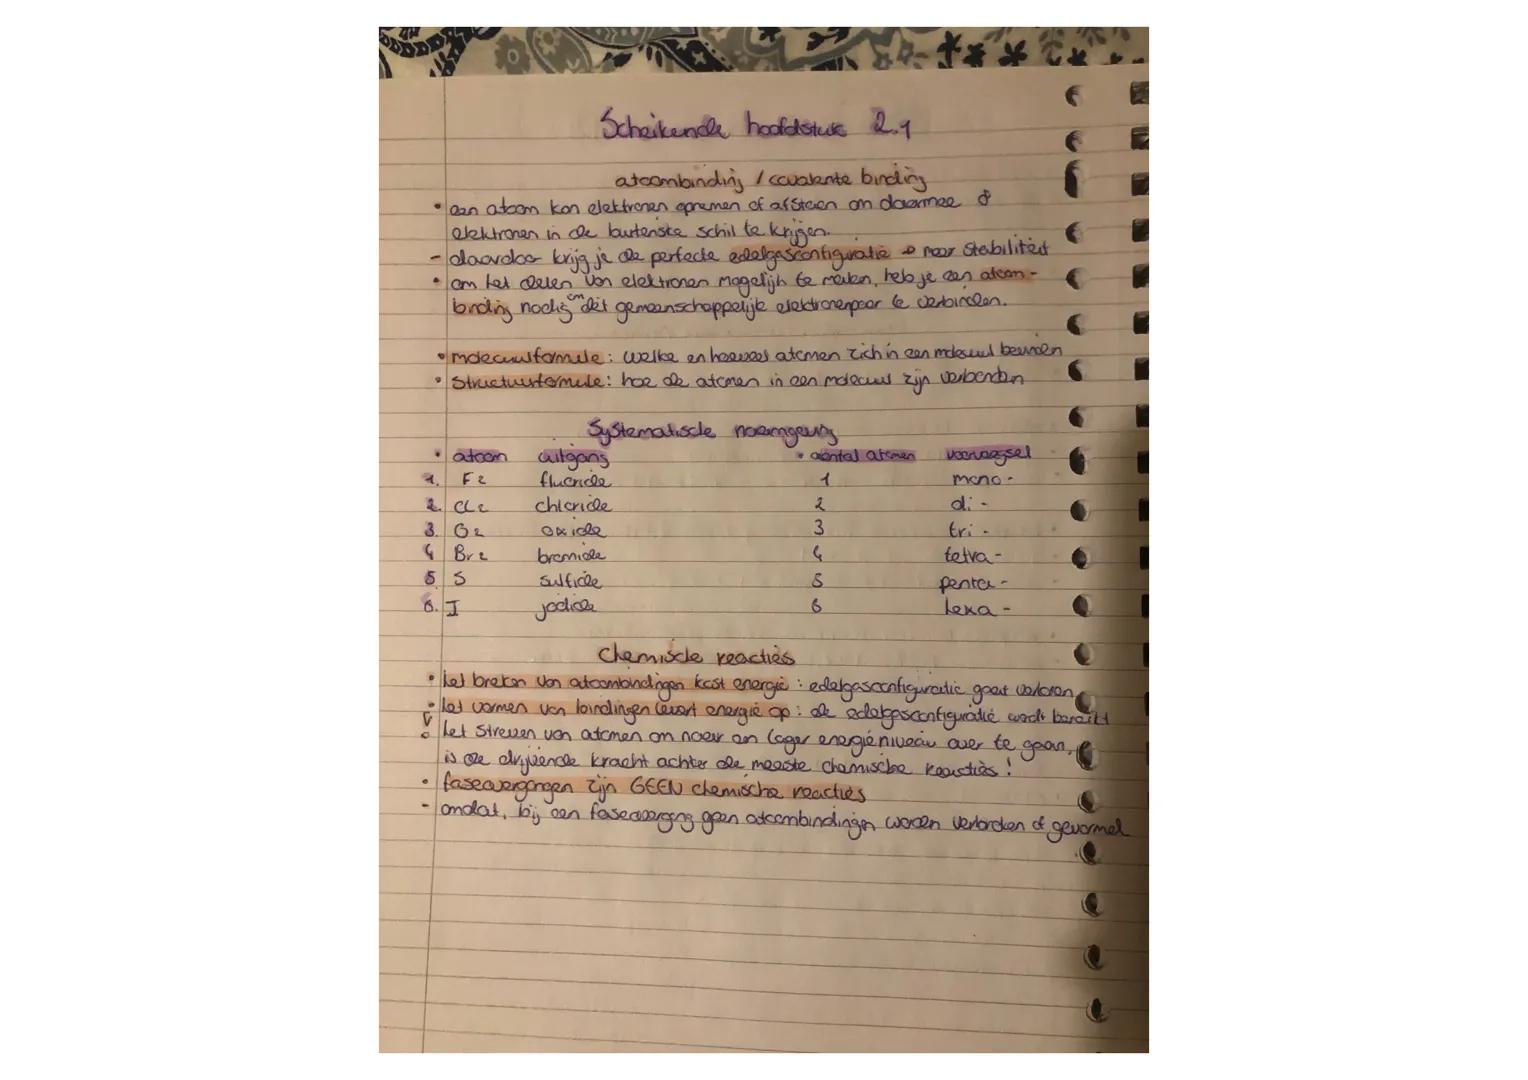 Scheikunde hoofdstuk 2.1
atoombinding / covalente binding
• een atoom kan elektronen opnemen of afstaan om daarmee 8
elektronen in de buitenste schil te krijgen.
- daardoor krijg je de perfecte edelgasconfiguratie → naar stabiliteit
• om het delen van elektronen mogelijk te maken, heb je een atoom-
binding nodig om dit gemeenschappelijk elektronenpaar te verbinden.
• molecuulformule: welke en hoeveel atomen zich in een molecuul bevinden
• Structuurformule: hoe de atomen in een molecuul zijn verbonden
Systematische naamgeving
• atoom uitgang • aantal atomen voorvoegsel
1. F2 fluoride 1 mono-
2. Cl2 chloride 2 di-
3. O2 oxide 3 tri-
4 Br2 bromide 4 tetra-
5. S sulfide 5 penta-
6. I jodide 6 hexa-
Chemische reacties
• het breken van atoombindingen kost energie: edelgasconfiguratie gaat verloren
• het vormen van bindingen levert energie op: de edelgasconfiguratie wordt bereikt
• het streven van atomen om naar een lager energieniveau over te gaan,
is de drijvende kracht achter de meeste chemische reacties!
• faseovergangen zijn GEEN chemische reacties
- omdat, bij een faseovergang geen atoombindingen worden verbroken of gevormd